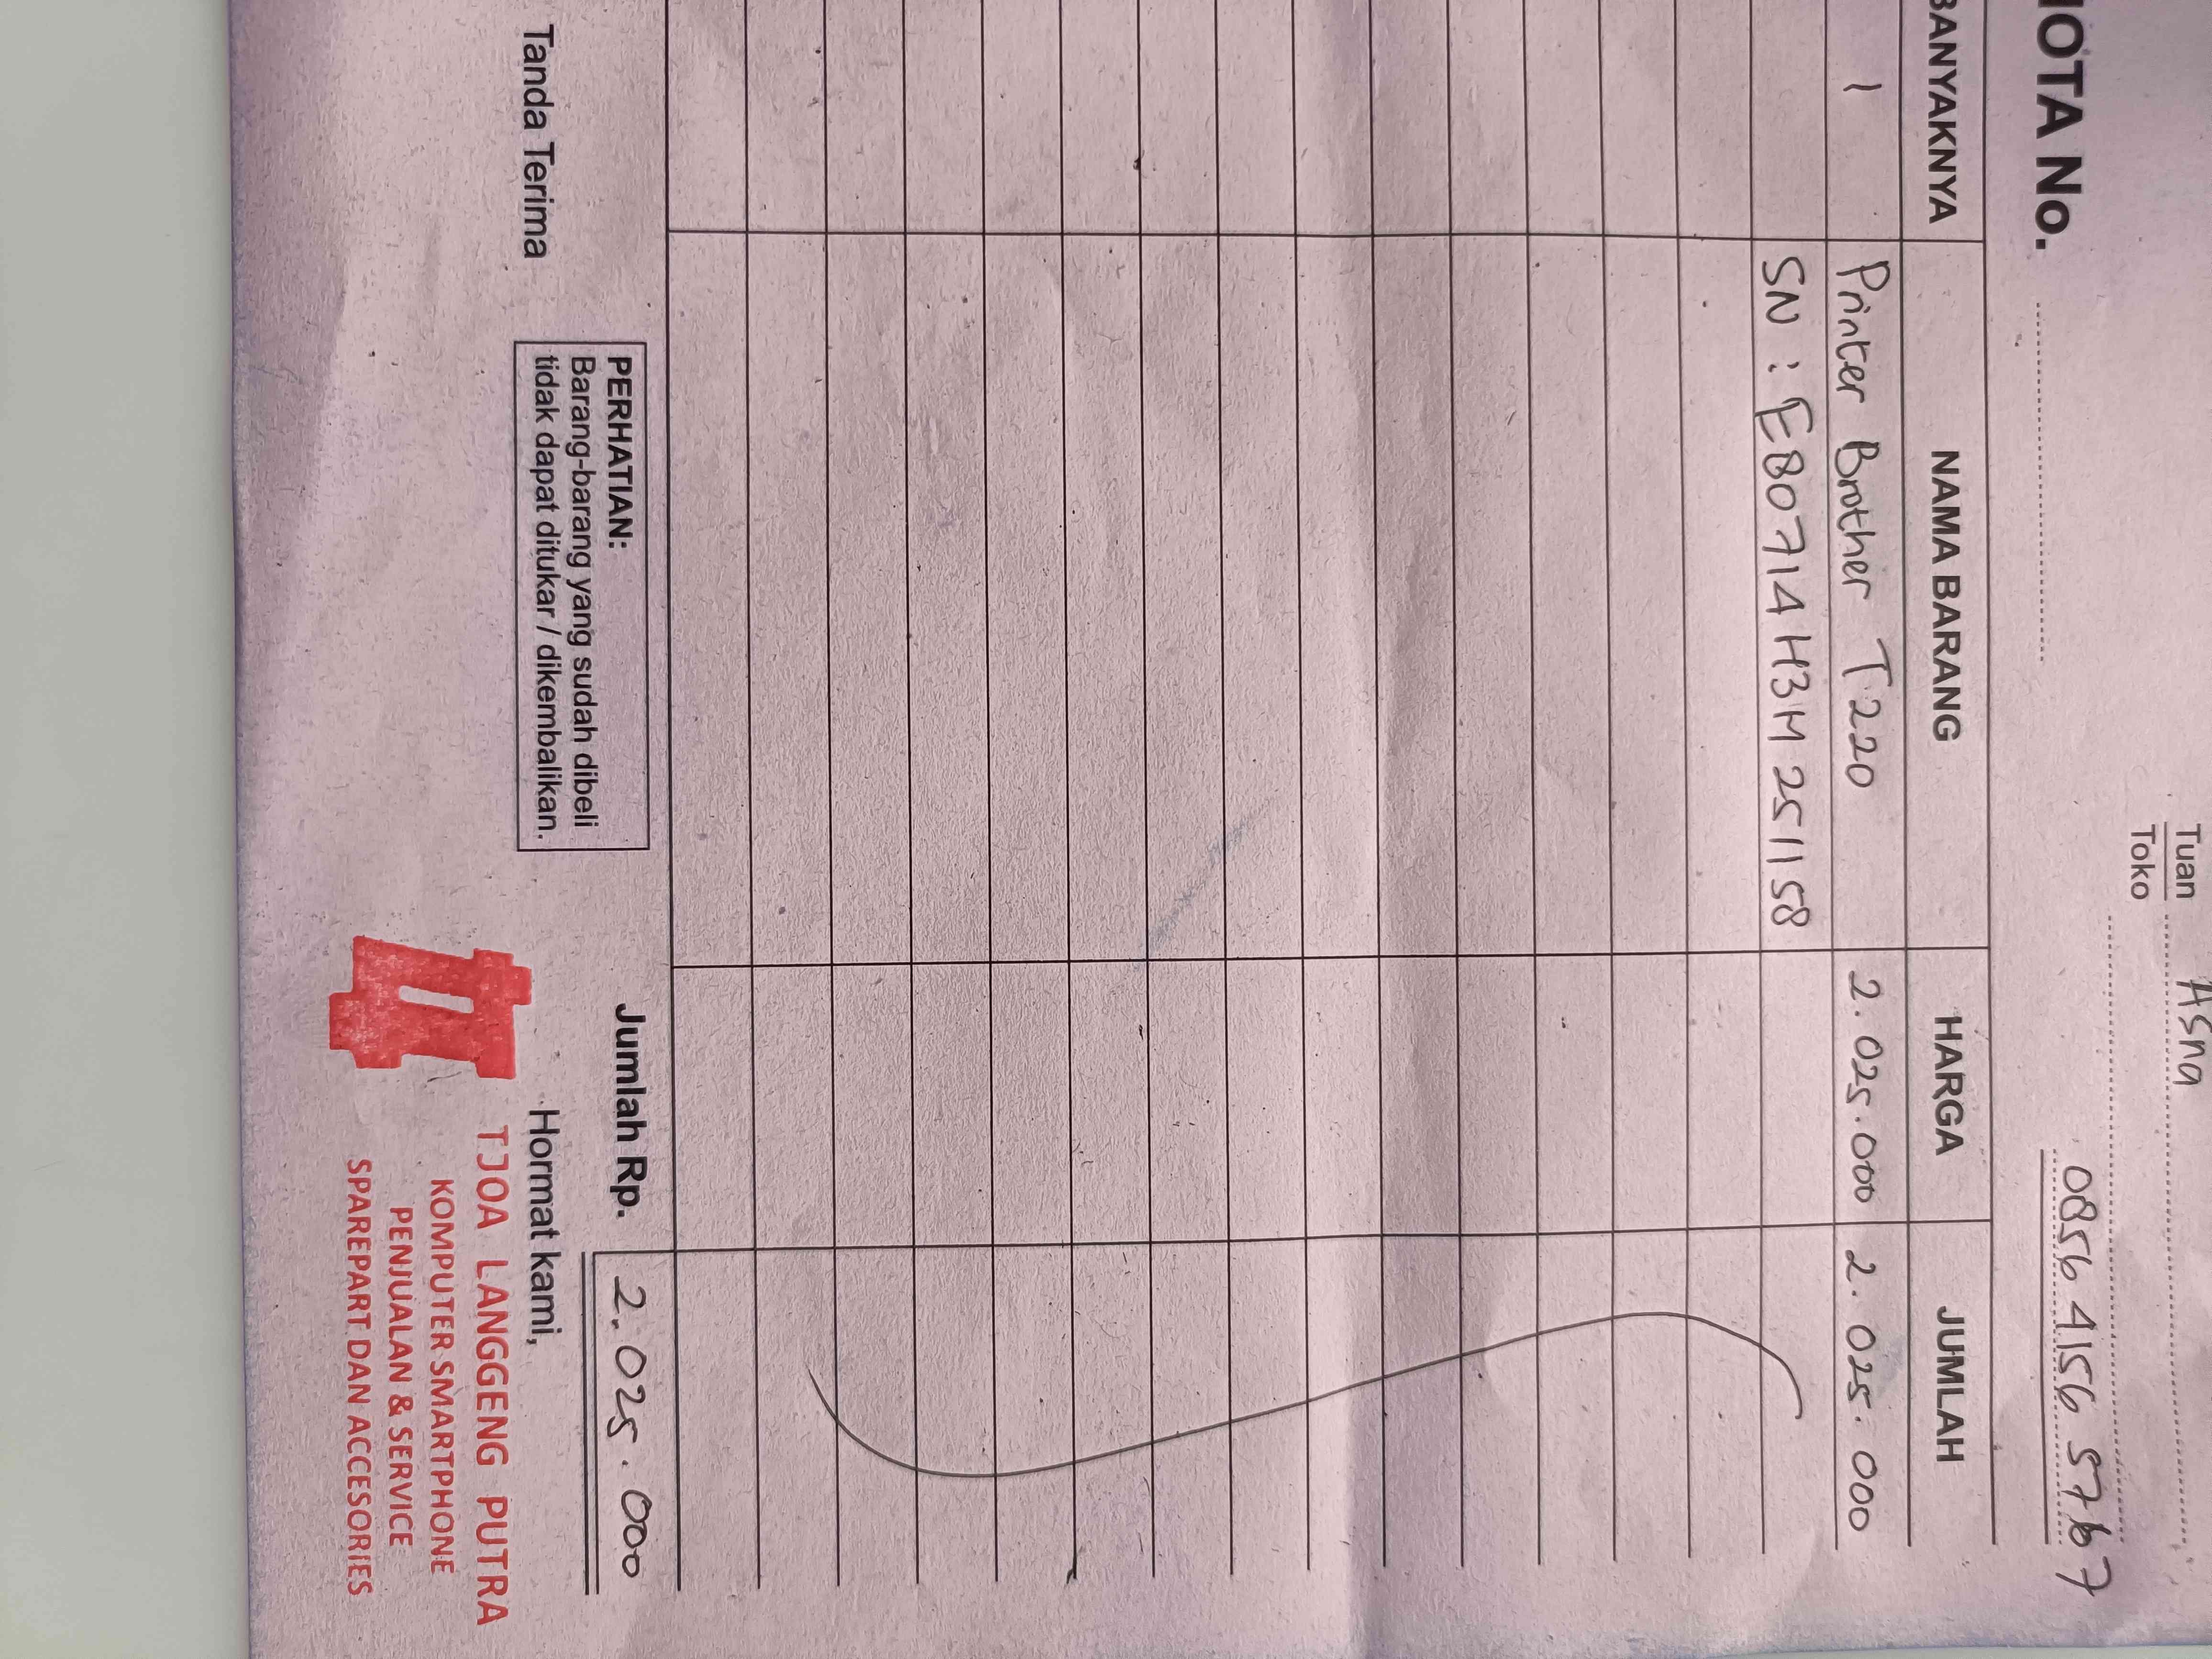 Tuan Asna
Toko
0856 4156 5767
NOTA No.
BANYAKNYA NAMA BARANG HARGA JUMLAH
1 Printer Brother T220 2.025.000 2.025.000
SN : E80714H3M251158
Jumlah Rp. 2.025.000
Tanda Terima
PERHATIAN:
Barang-barang yang sudah dibeli
tidak dapat ditukar / dikembalikan.
Hormat kami,
TJOA LANGGENG PUTRA
KOMPUTER SMARTPHONE
PENJUALAN & SERVICE
SPAREPART DAN ACCESORIES